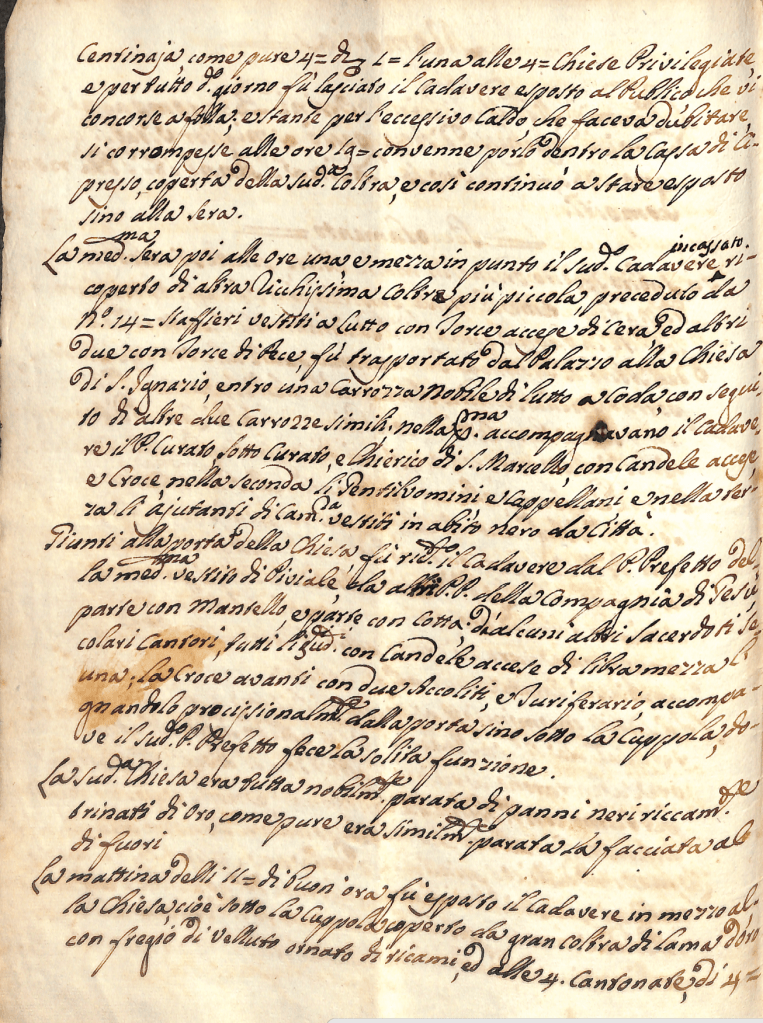 Centinaja, come pure 4= di L= l'una alle 4= Chiese Privilegiate
e per tutto d.º giorno fù lasciato il Cadavere esposto al Publico che vi
concorse a folla; e stante per l'eccessivo Caldo, che faceva dubitare,
si corrompesse, alle ore 19= convenne porlo dentro la Cassa di Ci-
presso, coperta della sud.ª Coltra, e così continuò a stare esposto
sino alla sera.
La med.ma sera poi alle ore una e mezza in punto il sud.º Cadavere incassato. ri-
coperto di altra Ricchissima Coltre più piccola, preceduto da
N.º 14= Staffieri vestiti a lutto con Torce accese di Cera, ed altri
due con Torce di Pece, fù trasportato dal Palazzo alla Chiesa
di S. Ignazio, entro una Carrozza Nobile di lutto a Coda, con segui-
to di altre due Carrozze simili, nella p.ma accompagnavano il Cadave-
re il P. Curato, sotto Curato, e Chierico di S. Marcello, con Candele accese
e Croce, nella seconda li Gentiluomini e Cappellani e nella ter-
za li Ajutanti di Cam.ª vestiti in abito nero da Città.
Giunti alla porta della Chiesa fù ric.to il Cadavere dal P. Prefetto del-
la med.ma vestito di Piviale, e da altri P.P. della Compagnia di Gesù
parte con Mantello, e parte con Cotta, d'alcuni altri Sacerdoti Se-
colari Cantori, tutti li sud.i con Candele accese di libra mezza l'
una, la Croce avanti con due Accoliti, e Turiferario, accompa-
gnandolo procissionalm.te dalla porta sino sotto la Cuppola, do-
ve il sud.º P. Prefetto fece la solita funzione.
La sud.ª Chiesa era tutta nobilm.te parata di panni neri riccam.te
trinati di Oro, come pure era similm.te parata la facciata al
di fuori
La mattina delli 11= di buon' ora fù esposto il Cadavere in mezzo al-
la Chiesa, cioè sotto la Cuppola coperto da gran Coltra di Lama d'oro
con fregio di velluto ornato di ricami, ed alle 4. Cantonate, di 4=